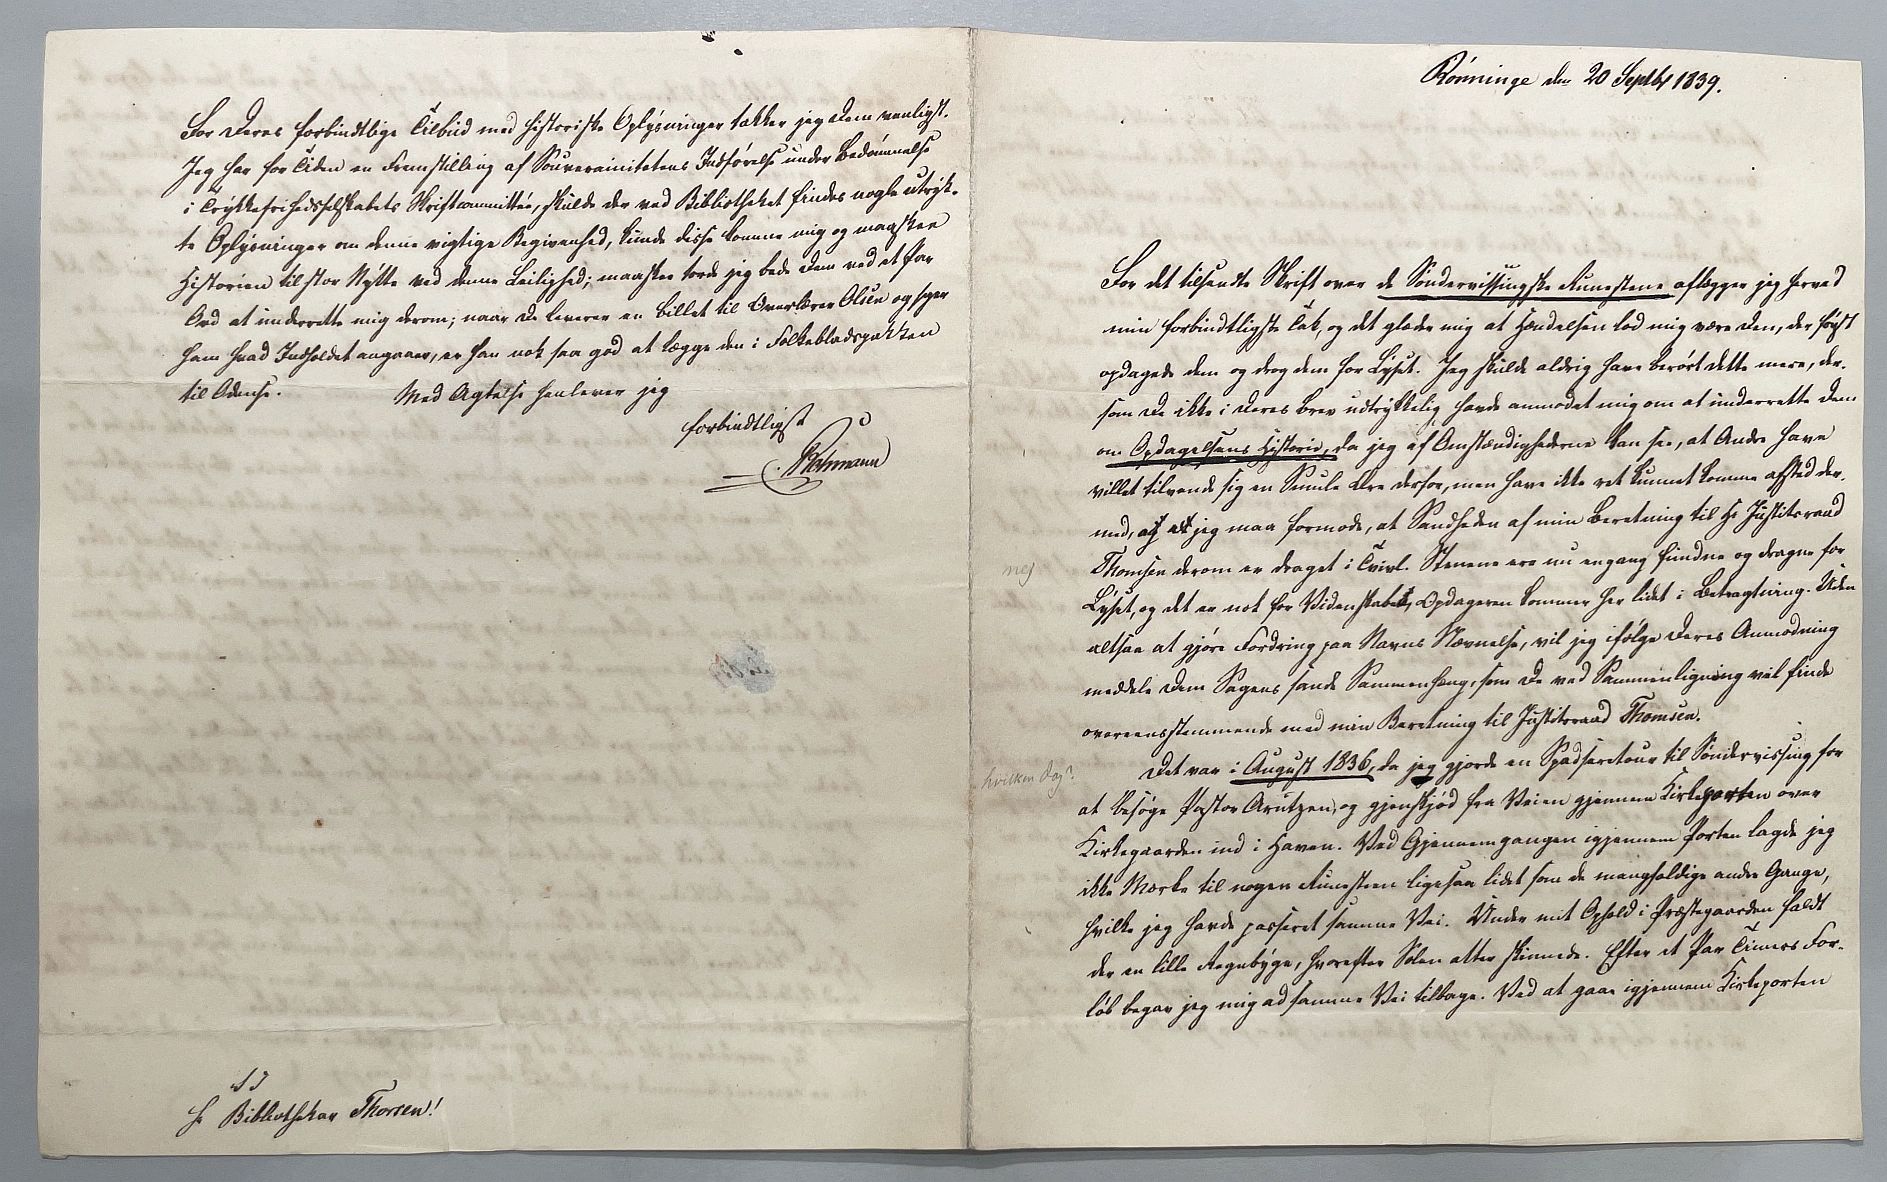 For Deres forbindtlige Tilbud med historiske Oplysninger takker jeg Dem venligst.
Jeg har for Tiden en Fremstilling af Souverainitetens Indførelse under Bedømmelse
i Trykkefrihedsselskabets Skriftcommittee, skulde der ved Bibliotheket findes nogle utryk-
te Oplysninger om denne vigtige Begivenhed, kunde disse komme mig og maaskee
Historien til stor Nytte ved denne Leilighed; maaskee torde jeg bede Dem ved et Par
Ord at underrette mig derom; naar De leverer en Billet til Overlærer Olsen og siger
ham hvad Indholdet angaaer, er han nok saa god at lægge den i Folkebladspakken
til Odense. Med Agtelse henlever jeg
forbindtligst
Rohmann
S T
Hr Bibliothekar Thorsen!
Rønninge den 20 Septbr 1839.
For det tilsendte Skrift over de Søndervissingske Runestene aflægger jeg herved
min forbindtligste Tak, og det glæder mig at Hændelsen lod mig være den, der først
opdagede dem og drog dem for Lyset. Jeg skulde aldrig have berørt dette mere, der-
som De ikke i Deres Brev udtrykkelig havde anmodet mig om at underrette Dem
om Opdagelsens Historie, da jeg af Omstændighederne kan see, at Andre have
villet tilvende sig en Smule Ære derfor, men have ikke ret kunnet komme afsted der-
med, jeg maa formode, at Sandheden af min Beretning til Hr Justitsraad
nej
Thomsen derom er draget i Tvivl. Stenene ere nu engang fundne og dragne for
Lyset, og det er nok for Videnskabet, Opdageren kommer her lidet i Betragtning. Uden
altsaa at gjøre Fordring paa Navns Nævnelse, vil jeg ifølge Deres Anmodning
meddele Dem Sagens sande Sammenhæng, som De ved Sammenligning vil finde
overeensstemmende med min Beretning til Justitsraad Thomsen.
hvilken Dag?
Det var i August 1836, da jeg gjorde en Spadseretour til Søndervissing for
at besøge Pastor Arntzen, og gjenskjød fra Veien gjennem Kirkeporten over
Kirkegaarden ind i Haven. Ved Gjennemgangen igjennem Porten lagde jeg
ikke Mærke til nogen Runesteen ligesaa lidet som de mangfoldige andre Gange,
hvilke jeg havde passeret samme Vei. Under mit Ophold i Præstegaarden faldt
der en lille Regnbyge, hvorefter Solen atter skinnede. Efter et Par Timers For-
løb begav jeg mig ad samme Vei tilbage. Ved at gaae igjennem Kirkeporten